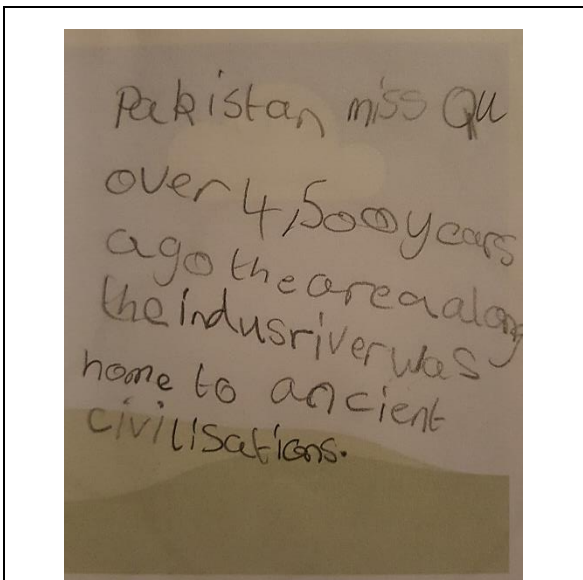 Pakistan miss QU
over 4,500 years
ago the area along
the indus river was
home to ancient
civilisations.